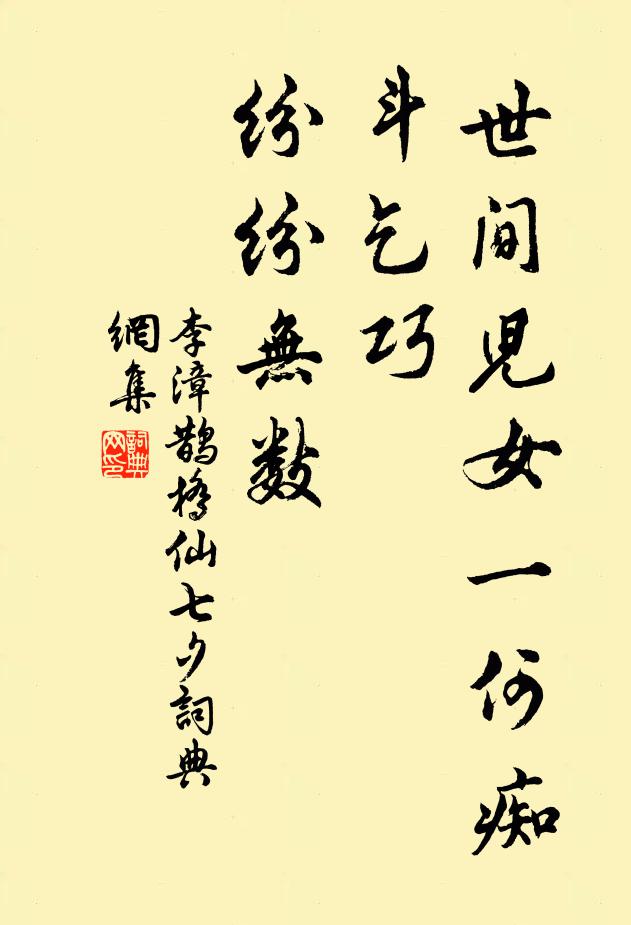 世間兒女一何痴
斗乞巧
紛紛無数
李漳鵲橋仙七夕詞典
網集
詞典
网印